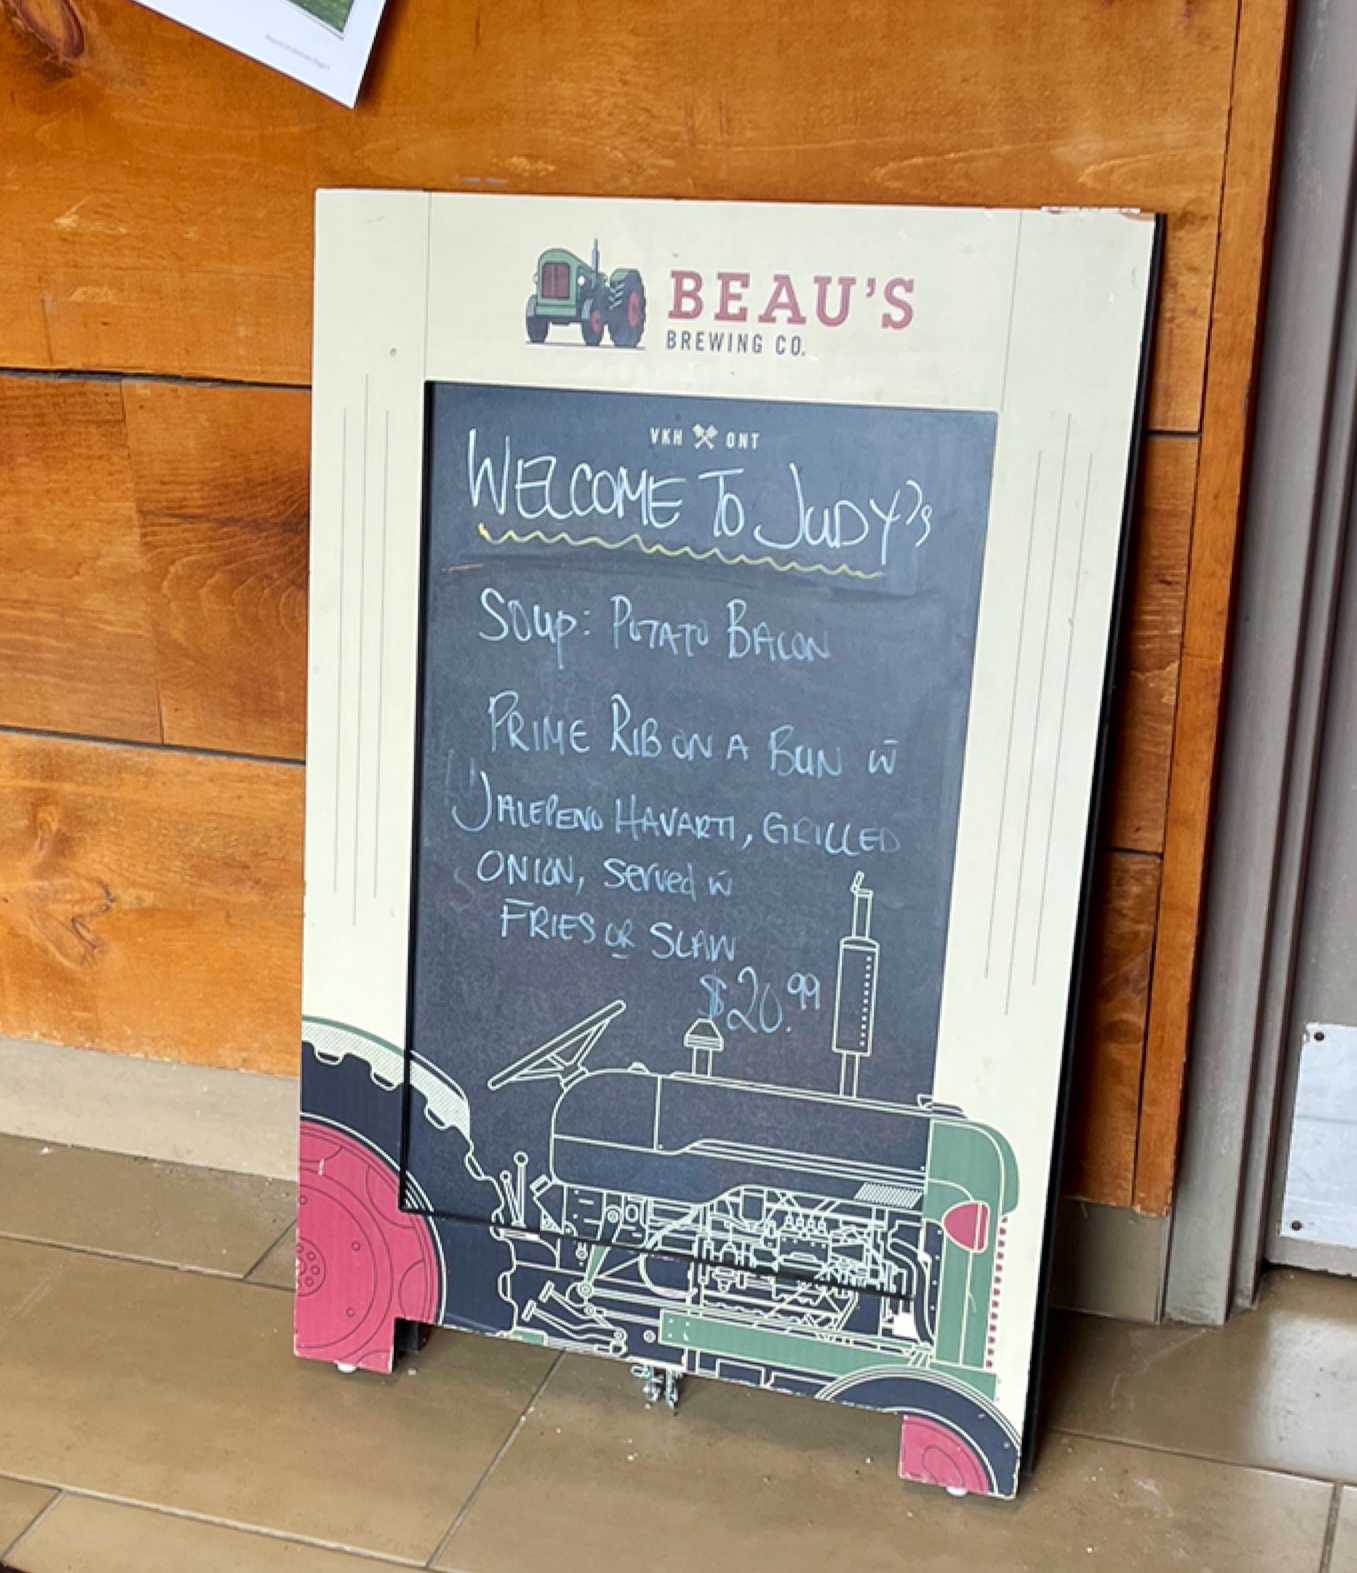 BEAU'S
BREWING CO.
VKH ONT
WELCOME TO JUDY's
SOUP: POTATO BACON
PRIME RIB ON A BUN w̄
JALEPENO HAVARTI, GRILLED
ONION, Served w̄
FRIES OR SLAW
$20.99